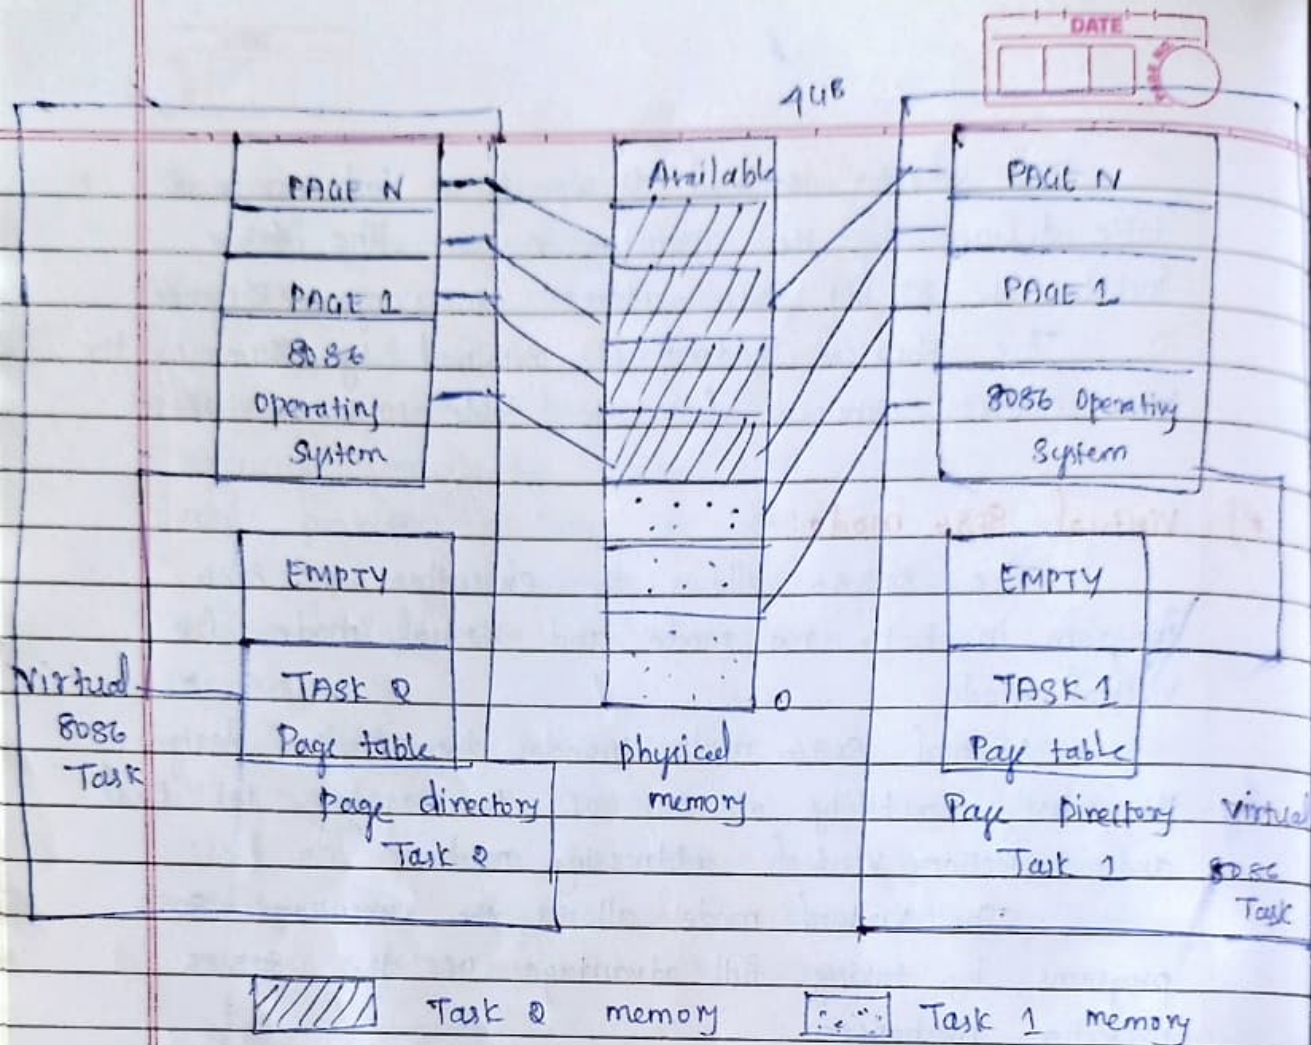 DATE
4GB
PAGE N
PAGE 1
8086
Operating
System
EMPTY
TASK 2
Page table
page directory
Task 2
Virtual
8086
Task
Available
0
physical
memory
PAGE N
PAGE 1
8086 Operating
System
EMPTY
TASK 1
Page table
Page Directory
Task 1
Virtual
8086
Task
Task 2 memory
Task 1 memory